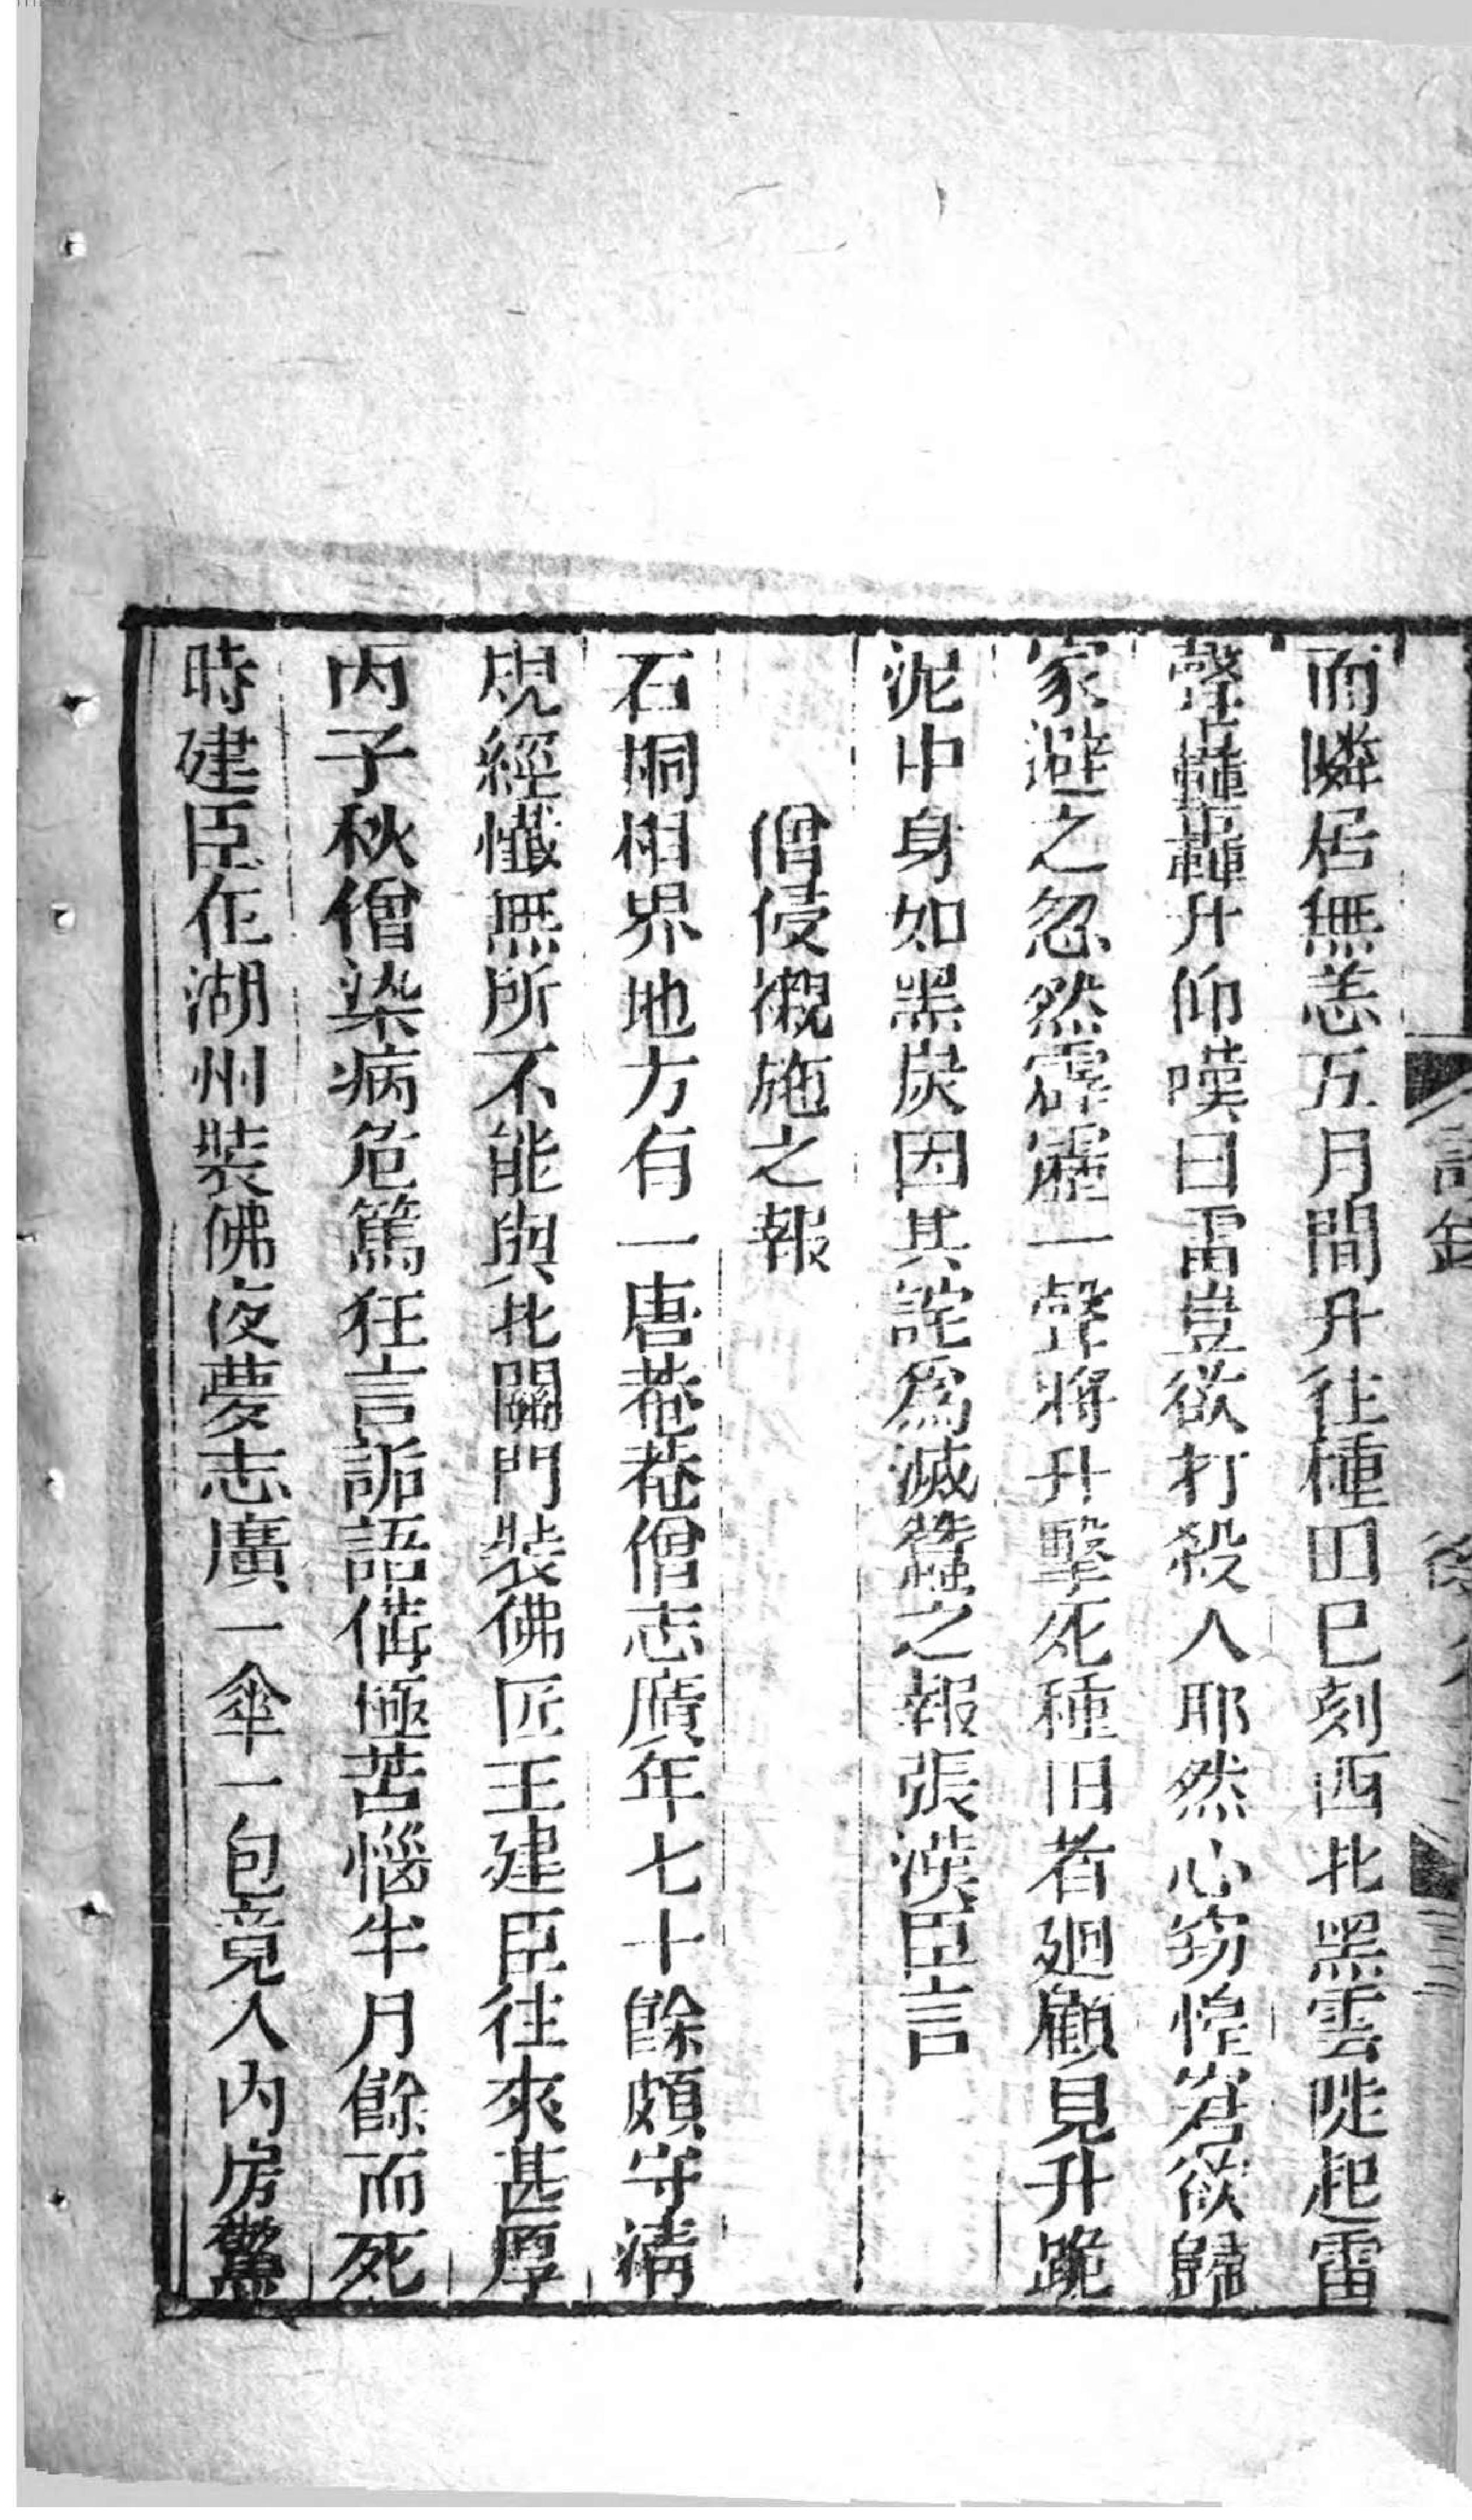 而隣居無恙五月間升往種田巳刻西北黑雲陡起雷
聲轟轟升仰嘆曰雷豈欲打殺人耶然心窃惶窘欲歸
家避之忽然霹靂一聲將升擊死種田者廻顧見升跪
泥中身如黑炭因共詫爲滅蠶之報張漢臣言
僧侵襯施之報
石桐相界地方有一唐菴菴僧志廣年七十餘頗守清
規經懺無所不能與北關門裝佛匠王建臣往來甚厚
丙子秋僧染病危篤狂言詬語備極苦惱半月餘而死
時建臣在湖州裝佛夜夢志廣一傘一包竟入內房驚